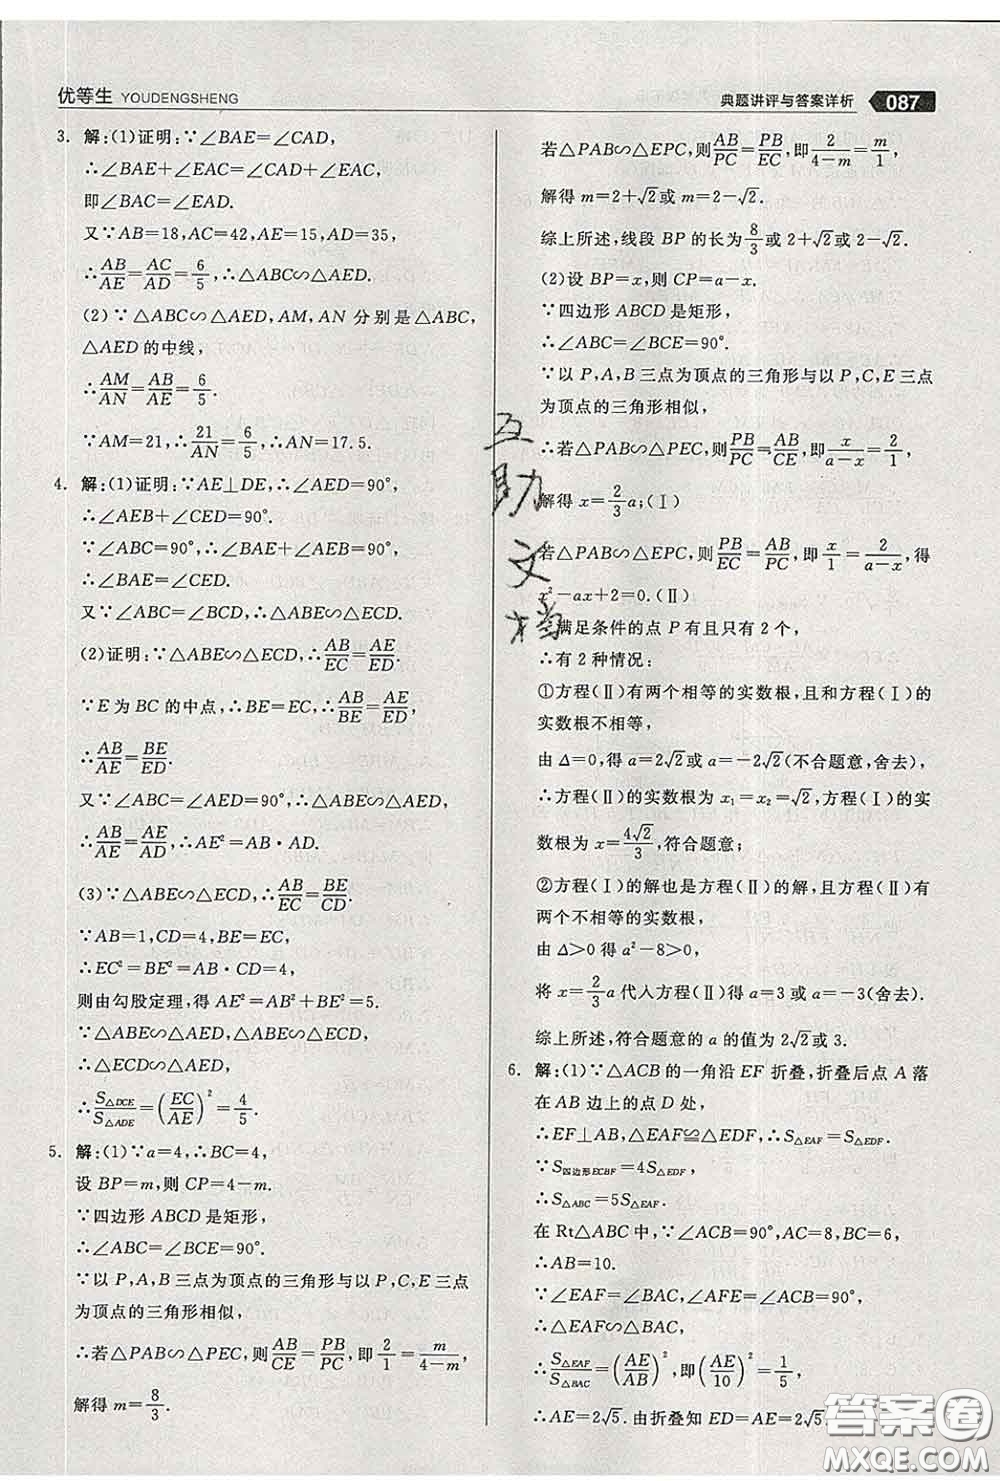 优等生 YOUDENGSHENG
典题讲评与答案详析 087
3. 解:(1)证明:∵∠BAE=∠CAD,
∴∠BAE+∠EAC=∠CAD+∠EAC,
即∠BAC=∠EAD.
又∵AB=18,AC=42,AE=15,AD=35,
∴AB/AE=AC/AD=6/5,∴△ABC∽△AED.
(2)∵△ABC∽△AED,AM,AN 分别是△ABC,
△AED的中线,
∴AM/AN=AB/AE=6/5.
∵AM=21,∴21/AN=6/5,∴AN=17.5.
4. 解:(1)证明:∵AE⊥DE,∴∠AED=90°,
∴∠AEB+∠CED=90°.
∵∠ABC=90°,∴∠BAE+∠AEB=90°,
∴∠BAE=∠CED.
又∵∠ABC=∠BCD,∴△ABE∽△ECD.
(2)证明:∵△ABE∽△ECD,∴AB/EC=AE/ED.
∵E为BC的中点,∴BE=EC,∴AB/BE=AE/ED,
∴AB/AE=BE/ED.
又∵∠ABC=∠AED=90°,∴△ABE∽△AED,
∴AB/AE=AE/AD,∴AE²=AB·AD.
(3)∵△ABE∽△ECD,∴AB/EC=BE/CD.
∵AB=1,CD=4,BE=EC,
∴EC²=BE²=AB·CD=4,
则由勾股定理,得AE²=AB²+BE²=5.
∵△ABE∽△AED,△ABE∽△ECD,
∴△ECD∽△AED,
∴S△DCE/S△ADE=(EC/AE)²=4/5.
5. 解:(1)∵a=4,∴BC=4,
设BP=m,则CP=4-m.
∵四边形ABCD是矩形,
∴∠ABC=∠BCE=90°.
∵以P,A,B三点为顶点的三角形与以P,C,E三点
为顶点的三角形相似,
∴若△PAB∽△PEC,则AB/CE=PB/PC,即2/1=m/4-m,
解得m=8/3.
若△PAB∽△EPC,则AB/PC=PB/EC,即2/4-m=m/1,
解得m=2+√2或m=2-√2.
综上所述,线段BP的长为8/3或2+√2或2-√2.
(2)设BP=x,则CP=a-x.
∵四边形ABCD是矩形,
∴∠ABC=∠BCE=90°.
∵以P,A,B三点为顶点的三角形与以P,C,E三点
为顶点的三角形相似,
∴若△PAB∽△PEC,则PB/PC=AB/CE,即x/a-x=2/1,
解得x=2/3a;(Ⅰ)
若△PAB∽△EPC,则PB/EC=AB/PC,即x/1=2/a-x,得
x²-ax+2=0.(Ⅱ)
满足条件的点P有且只有2个,
∴有2种情况:
①方程(Ⅱ)有两个相等的实数根,且和方程(Ⅰ)的
实数根不相等,
由Δ=0,得a=2√2或a=-2√2(不合题意,舍去),
∴方程(Ⅱ)的实数根为x₁=x₂=√2,方程(Ⅰ)的实
数根为x=4√2/3,符合题意;
②方程(Ⅰ)的解也是方程(Ⅱ)的解,且方程(Ⅱ)有
两个不相等的实数根,
由Δ>0得a²-8>0,
将x=2/3a代入方程(Ⅱ)得a=3或a=-3(舍去).
综上所述,符合题意的a的值为2√2或3.
6. 解:(1)∵△ACB的一角沿EF折叠,折叠后点A落
在AB边上的点D处,
∴EF⊥AB,△EAF≌△EDF,∴S△EAF=S△EDF.
∵S四边形ECBF=4S△EDF,
∴S△ABC=5S△EAF.
在Rt△ABC中,∵∠ACB=90°,AC=8,BC=6,
∴AB=10.
∵∠EAF=∠BAC,∠AFE=∠ACB=90°,
∴△EAF∽△BAC,
∴S△EAF/S△BAC=(AE/AB)²,即(AE/10)²=1/5,
∴AE=2√5.由折叠知ED=AE=2√5.
互助文档
答案圈
MXQE.COM